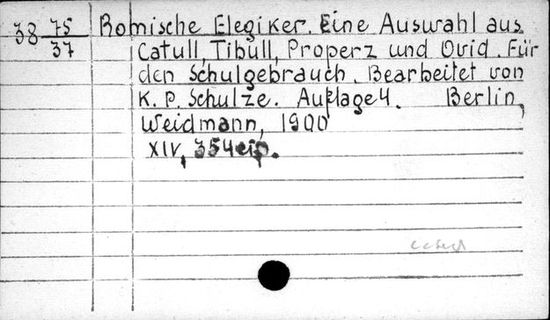 38 75/37 Romische Elegiker. Eine Auswahl aus
Catull, Tibull, Properz und Ovid. Für
den Schulgebrauch. Bearbeitet von
K. P. Schulze. Auflage 4. Berlin,
Weidmann, 1900
XIV, 354